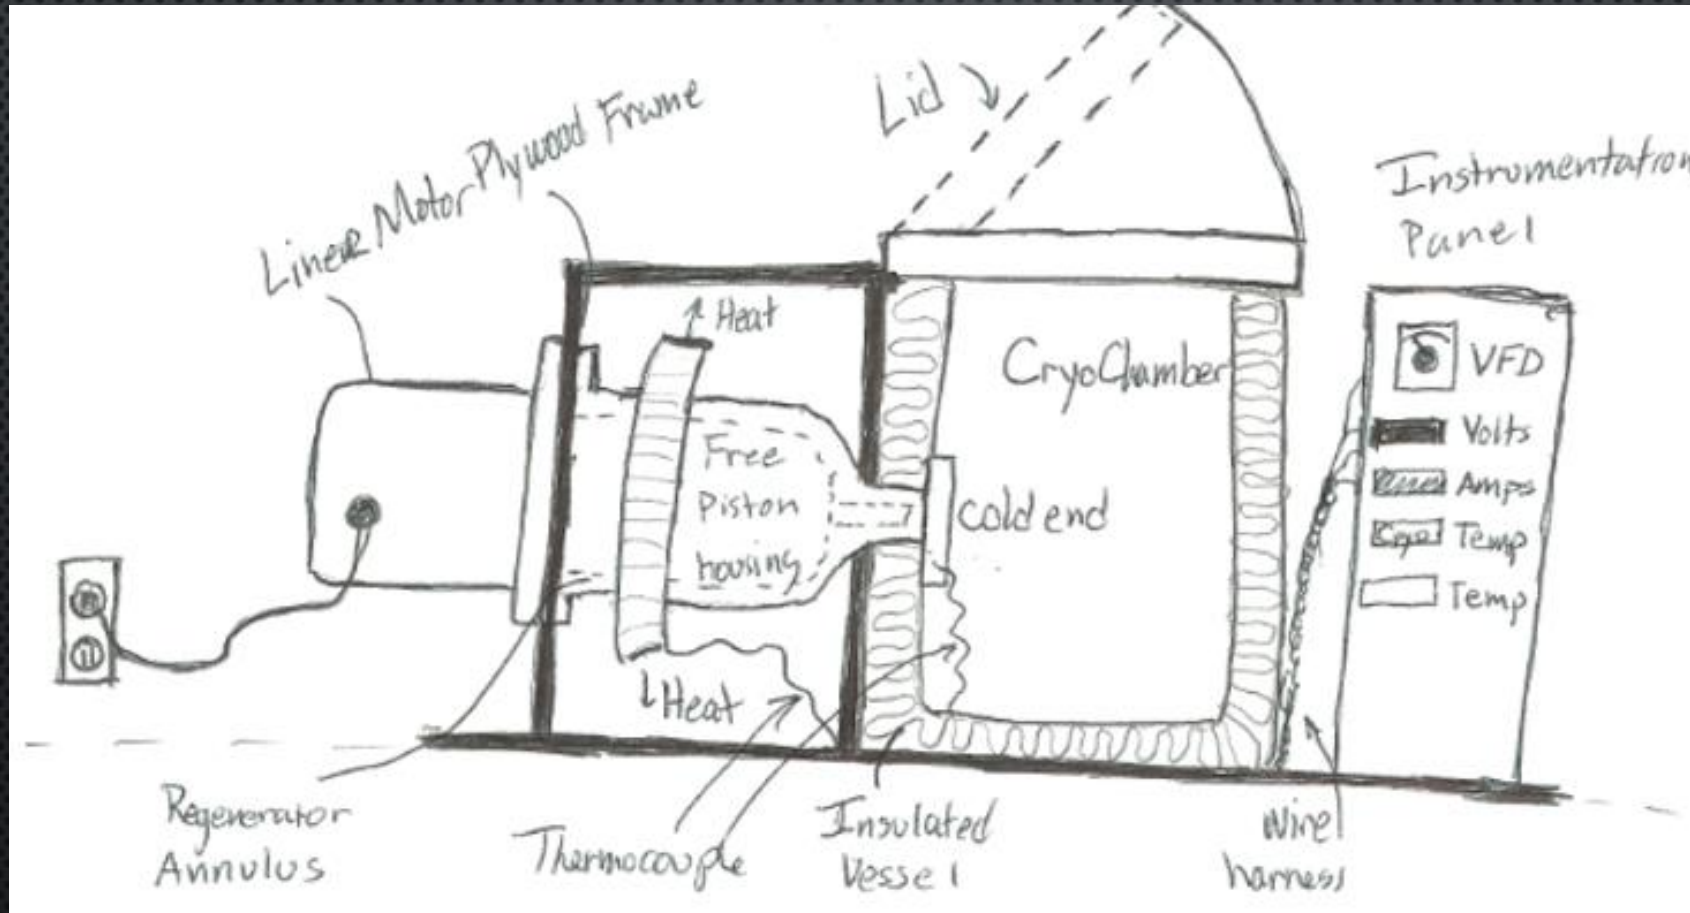 Linear Motor
Plywood Frame
Lid
Instrumentation
Panel
Heat
CryoChamber
VFD
Volts
Amps
Cryo Temp
Temp
Free
Piston
housing
cold end
Heat
Regenerator
Annulus
Thermocouple
Insulated
Vessel
Wire
harness